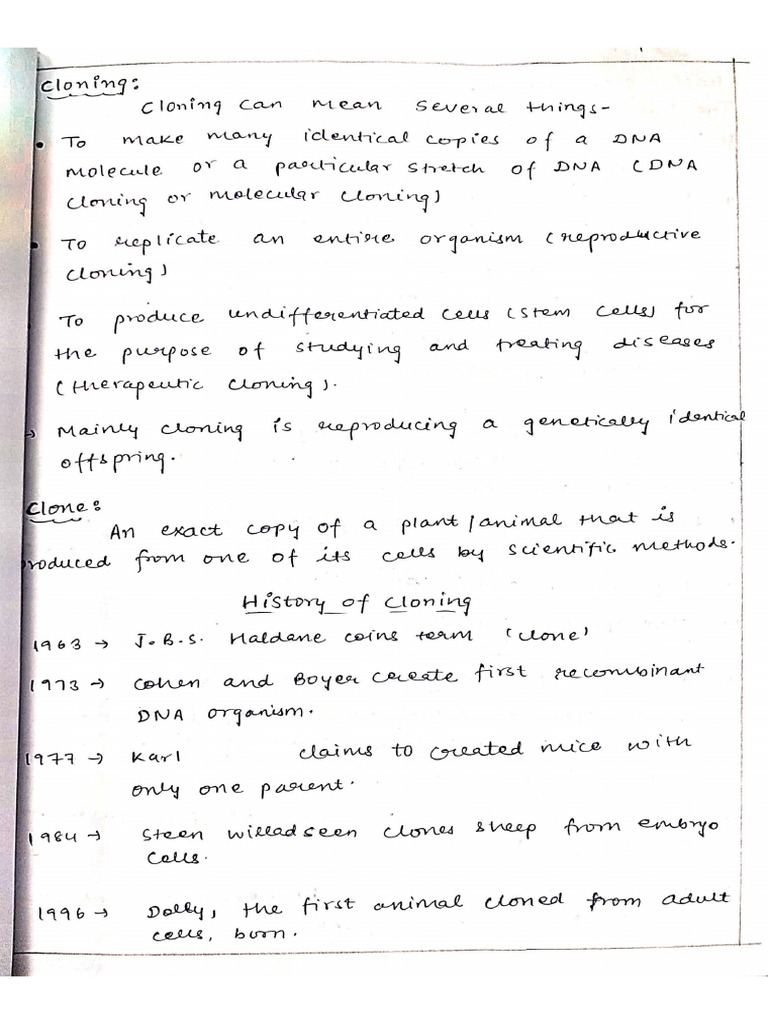 Cloning:
Cloning can mean several things-
• To make many identical copies of a DNA
molecule or a particular stretch of DNA (DNA
cloning or molecular cloning)
• To replicate an entire organism (reproductive
cloning)
To produce undifferentiated cells (stem cells) for
the purpose of studying and treating diseases
(therapeutic cloning).
→ Mainly cloning is reproducing a genetically identical
offspring.
Clone:
An exact copy of a plant/animal that is
produced from one of its cells by scientific methods.
History of Cloning
1963 → J.B.S. Haldane coins term 'clone'
1973 → Cohen and Boyer create first recombinant
DNA organism.
1977 → Karl claims to created mice with
only one parent.
1984 → Steen willadseen clones sheep from embryo
cells.
1996 → Dolly, the first animal cloned from adult
cells, born.